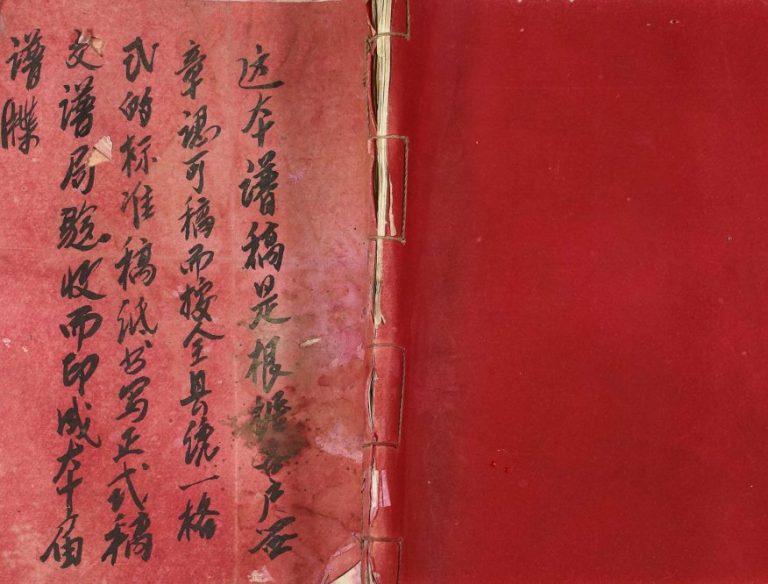 这本谱稿是根据各户签
章认可稿而按全县统一格
式的标准稿纸书写正式稿
交谱局验收而印成本届
谱牒